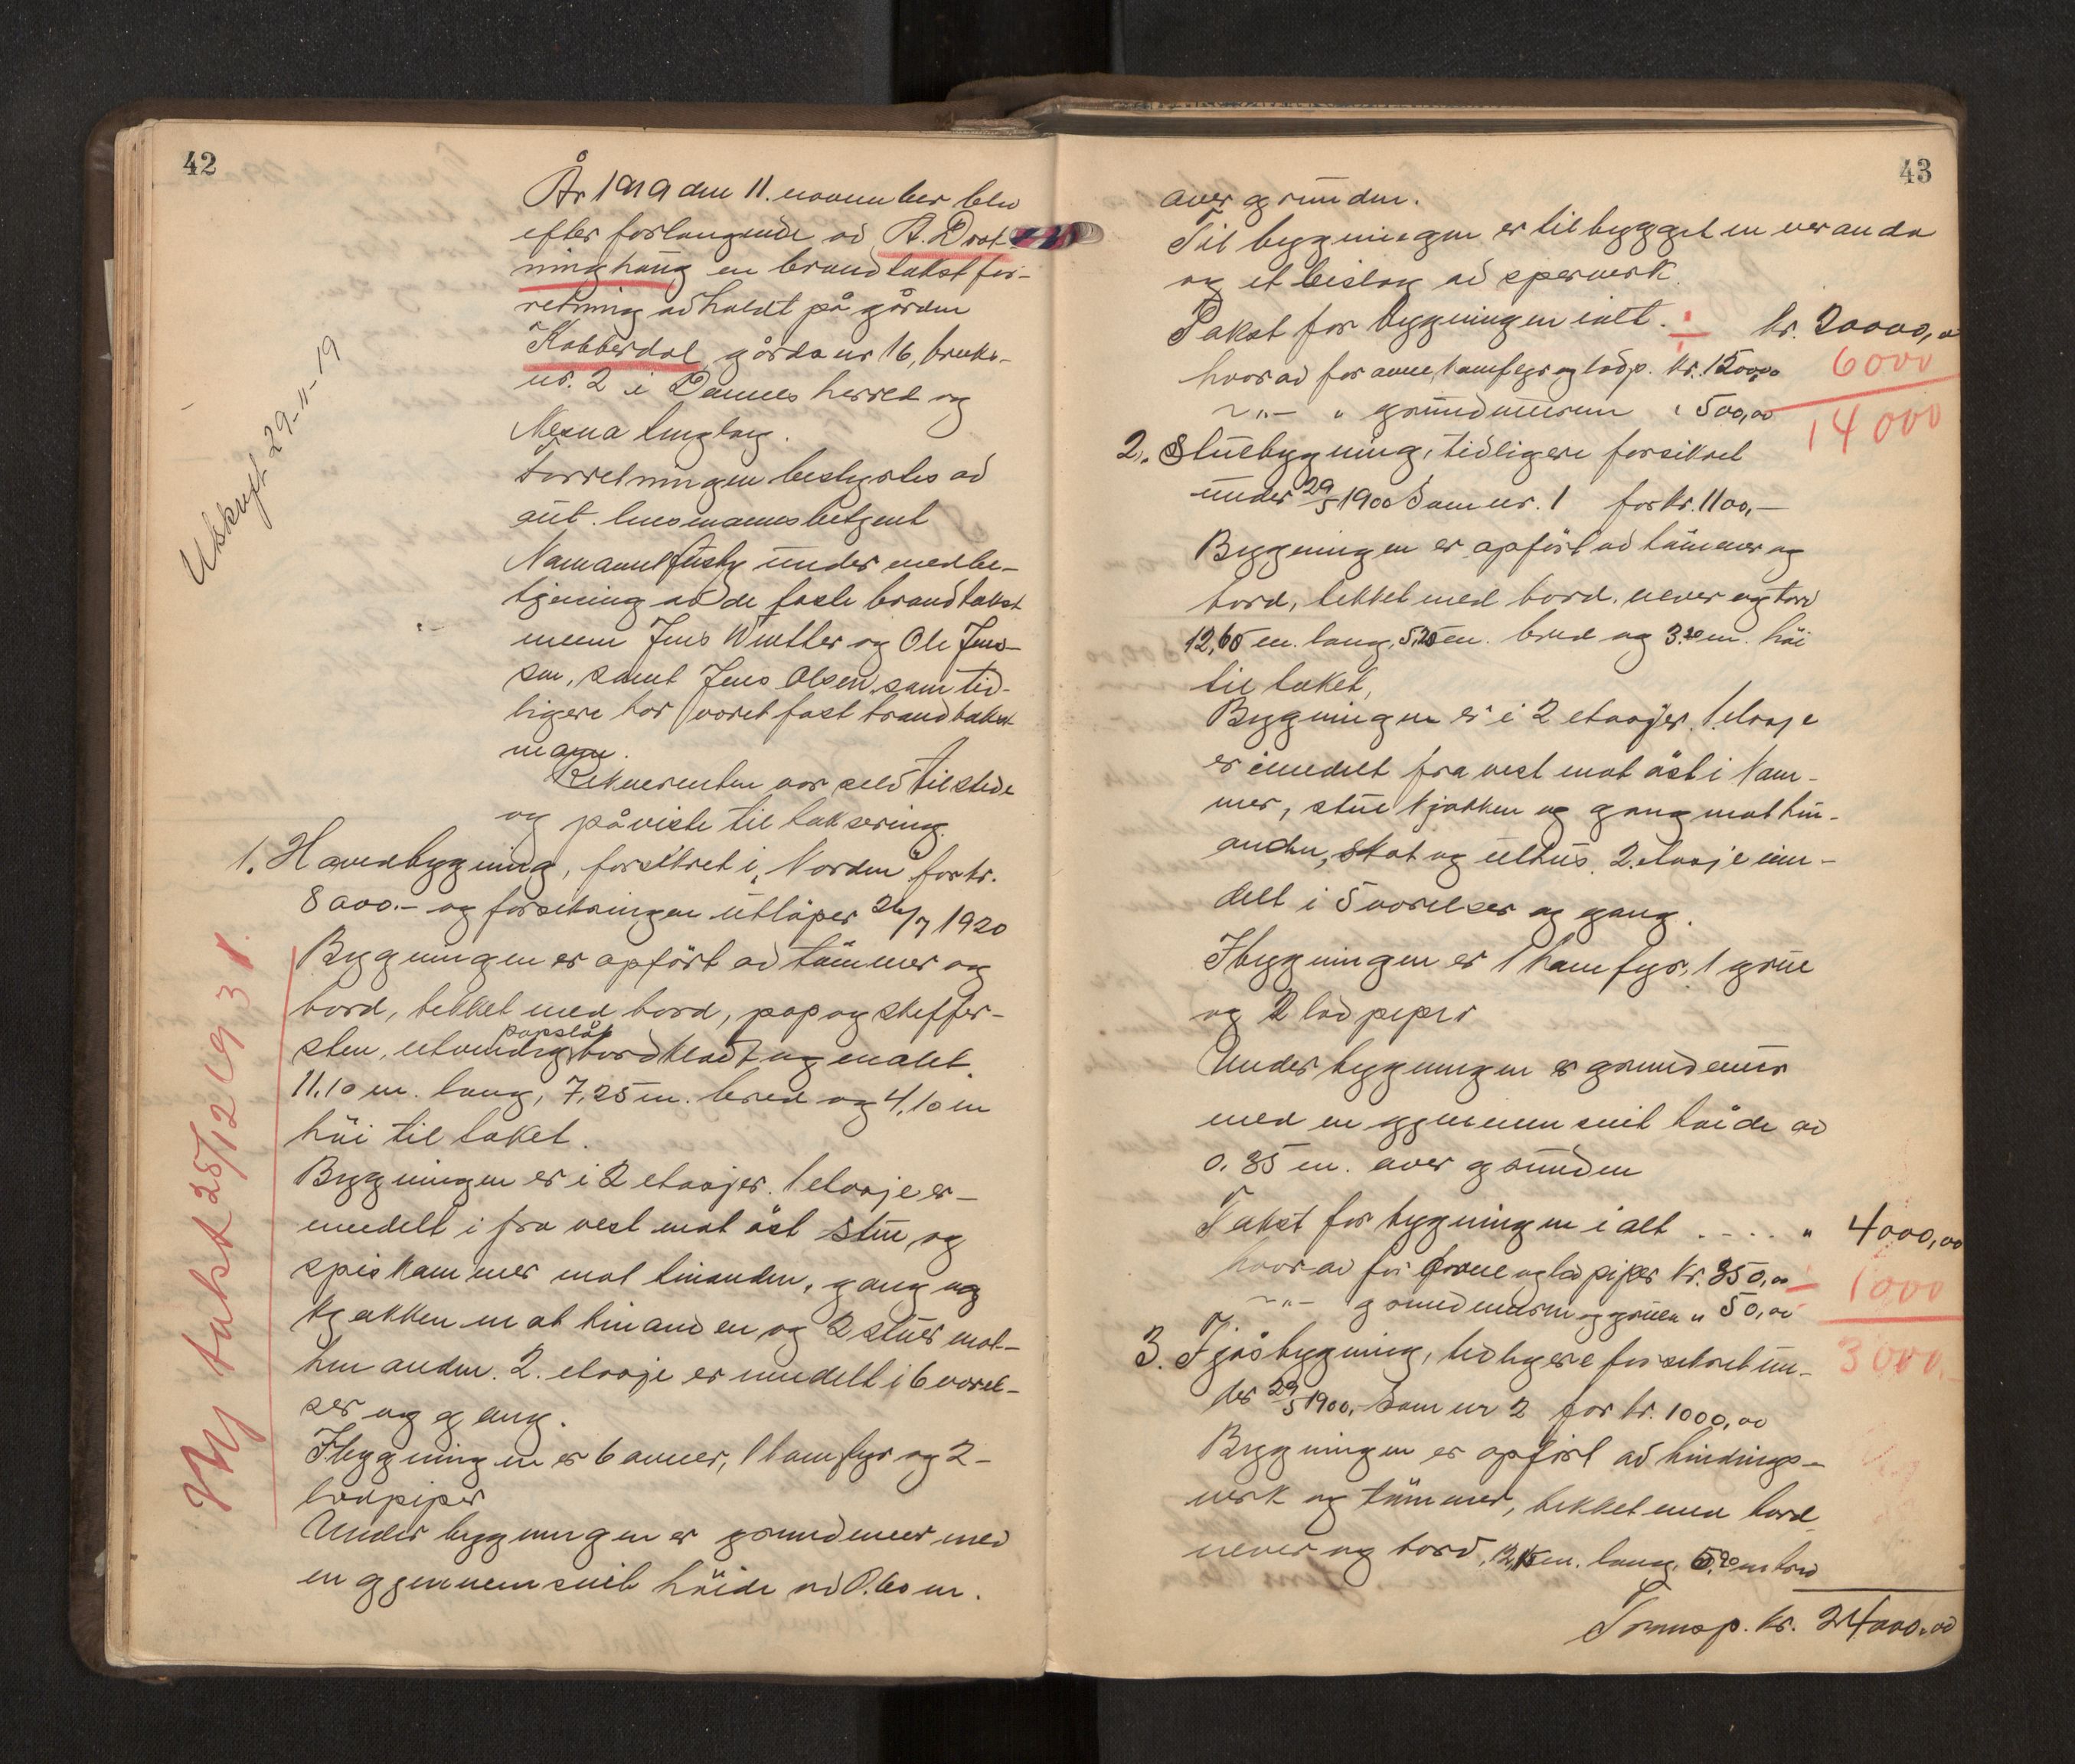 42
År 1919 den 11. november blev
efter forlangende av A. Drot-
ninghaug en brandtakstfor-
retning avholdt på gården
Kobberdal, gårdsnr 16, bruks-
nr. 2 i Dønnes herred og
Nesna tinglag.
Forretningen bestyrtes av
aut. lensmannsbetjent
under medbe-
tjening av de faste brandtakst
menn Jens Winther og Ole Jens-
sen, samt Jens Olsen, som tid-
ligere har voret fast brandtakst
mann.
Rekvirenten var selv tilstede
og påviste til taksering.
Utskrift 29-11-19
1. Hovedbygning, forsikret i "Norden" for kr.
8000.- og forsikringen utløper 26/7 1920
Bygningen er opført av tømmer og
bord, tekket med bord, pap og skiffer-
sten, utvendig papslåt bordklædt og malet.
11,10 m. lang, 7,25 m. bred og 4,10 m
høi til taket.
Bygningen er i 2 etasjer. 1 etasje er-
inndelt i fra vest mot øst stue, og
spiskammer mot hinanden, gang og
kjøkken mot hinanden og 2 stuer mot-
hinanden. 2. etasje er inndelt i 6 vorel-
ser og gang.
I bygningen er 6 ovner, 1 kamfyr og 2-
lodpiper
Under bygningen er grundmur med
en gjennemsnit høide av 0.60 m.
Ny takst 28/12 1931.
43
over grunden.
Til bygningen er tilbygget en veranda
og et bislag av sperverk.
Takst for bygningen ialt. ÷ kr. 20000,00
hvorav for ovne, kamfyr og lodp. kr. 1500,00
6000
-"- " grundmuren " 500,00
14000
2. Stuebygning, tidligere forsikret
under 29/5 1900 som nr. 1 for kr. 1100,-
Bygningen er opført av tømmer og
bord, tekket med bord, never og torv
12,65 m. lang, 5,25 m. bred og 3.20 m. høi
til taket,
Bygningen er i 2 etasjer. 1. etasje
er inndelt fra vest mot øst i kam-
mer, stue kjøkken og gang mot hin-
anden, skot og uthus. 2. etasje inn-
delt i 5 vorelser og gang.
I bygningen er 1 kamfyr, 1 grue
og 2 lodpiper
Under bygningen er grundmur
med en gjennemsnit høide av
0.35 m. over grunden
Takst for bygningen i alt . - . . " 4000,00
hvorav for ovne og lodpiper kr. 350,00
1000
-"- grundmuren og gruen " 50,00
3000.-
3. Fjøsbygning, tidligere forsikret un-
der 29/5 1900,- som nr 2 for kr. 1000,00
Bygningen er opført av bindings-
verk og tømmer, tekket med bord
never og torv, 12,15 m. lang, 5,20 m bred
Transp. kr. 24000.00